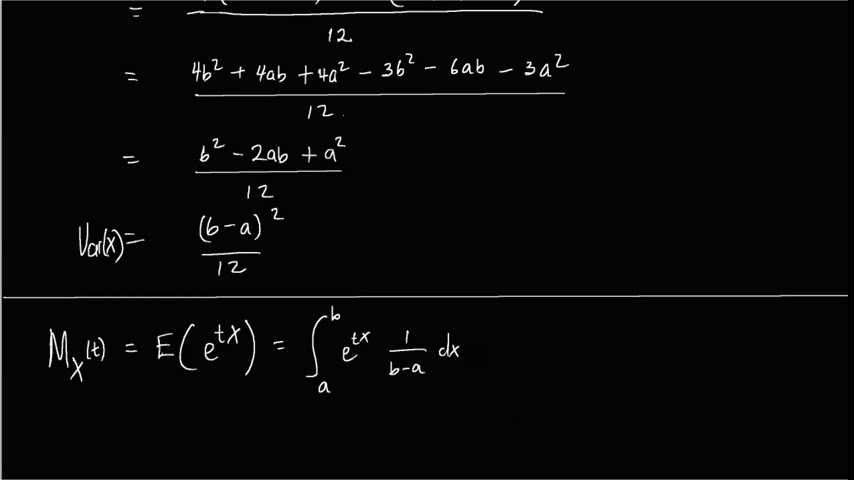 =
12
= 4b² + 4ab + 4a² - 3b² - 6ab - 3a²
12.
= b² - 2ab + a²
12
Var(x) = (b-a)²
12
M_X(t) = E(e^{tX}) = ∫_a^b e^{tx} 1/(b-a) dx